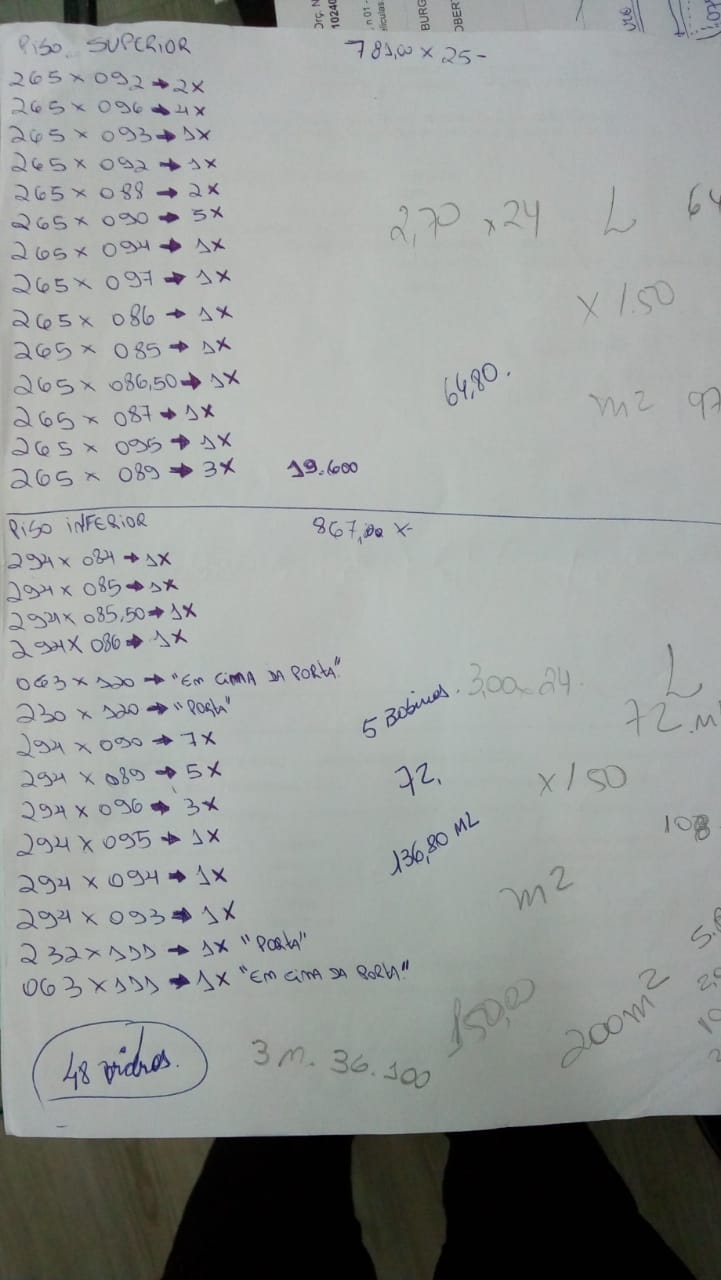 PISO SUPERIOR 781,00 x 25-
265 x 092 → 2x
265 x 096 → 4x
265 x 093 → 1x
265 x 092 → 1x
265 x 088 → 2x
265 x 090 → 5x
265 x 094 → 1x
265 x 097 → 1x
265 x 086 → 1x
265 x 085 → 1x
265 x 086,50 → 1x
265 x 087 → 1x
265 x 095 → 1x
265 x 089 → 3x
19.600
2,70 x 24 L 64
x 1.50
64,80.
m2 97
PISO INFERIOR 867,00 x-
294 x 084 → 1x
294 x 085 → 1x
294 x 085,50 → 1x
294 x 086 → 1x
063 x 120 → "EM CIMA DA PORTA"
230 x 120 → "PORTA"
294 x 090 → 7x
294 x 089 → 5x
294 x 096 → 3x
294 x 095 → 1x
294 x 094 → 1x
294 x 093 → 1x
232 x 111 → 1x "PORTA"
063 x 111 → 1x "EM CIMA DA PORTA"
5 Bobinas. 3,00 x 24. L
72.m
72. x 150
136,80 ML 108
m2
48 vidros.
3 m. 36.100
150,00
200m2
BURG
10240